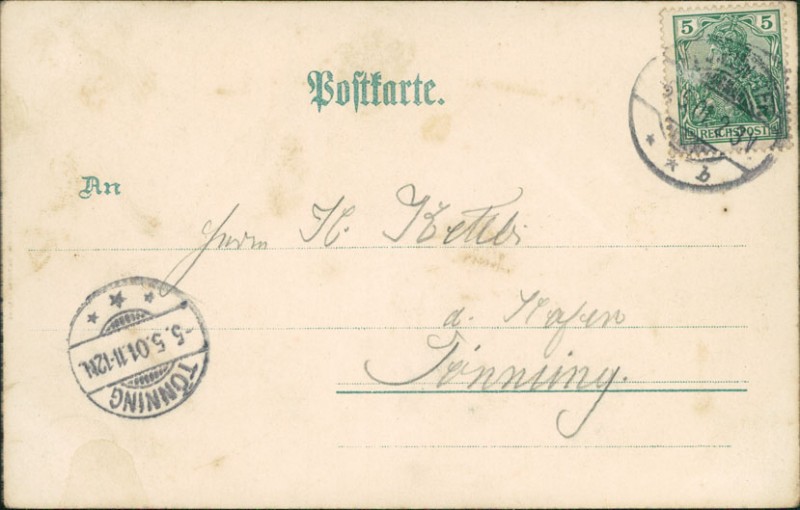 Postkarte.
5 5
REICHSPOST
b
An
Herrn K.
a. Hafen
Tönning.
-5.5.01.11-12N.
TÖNNING